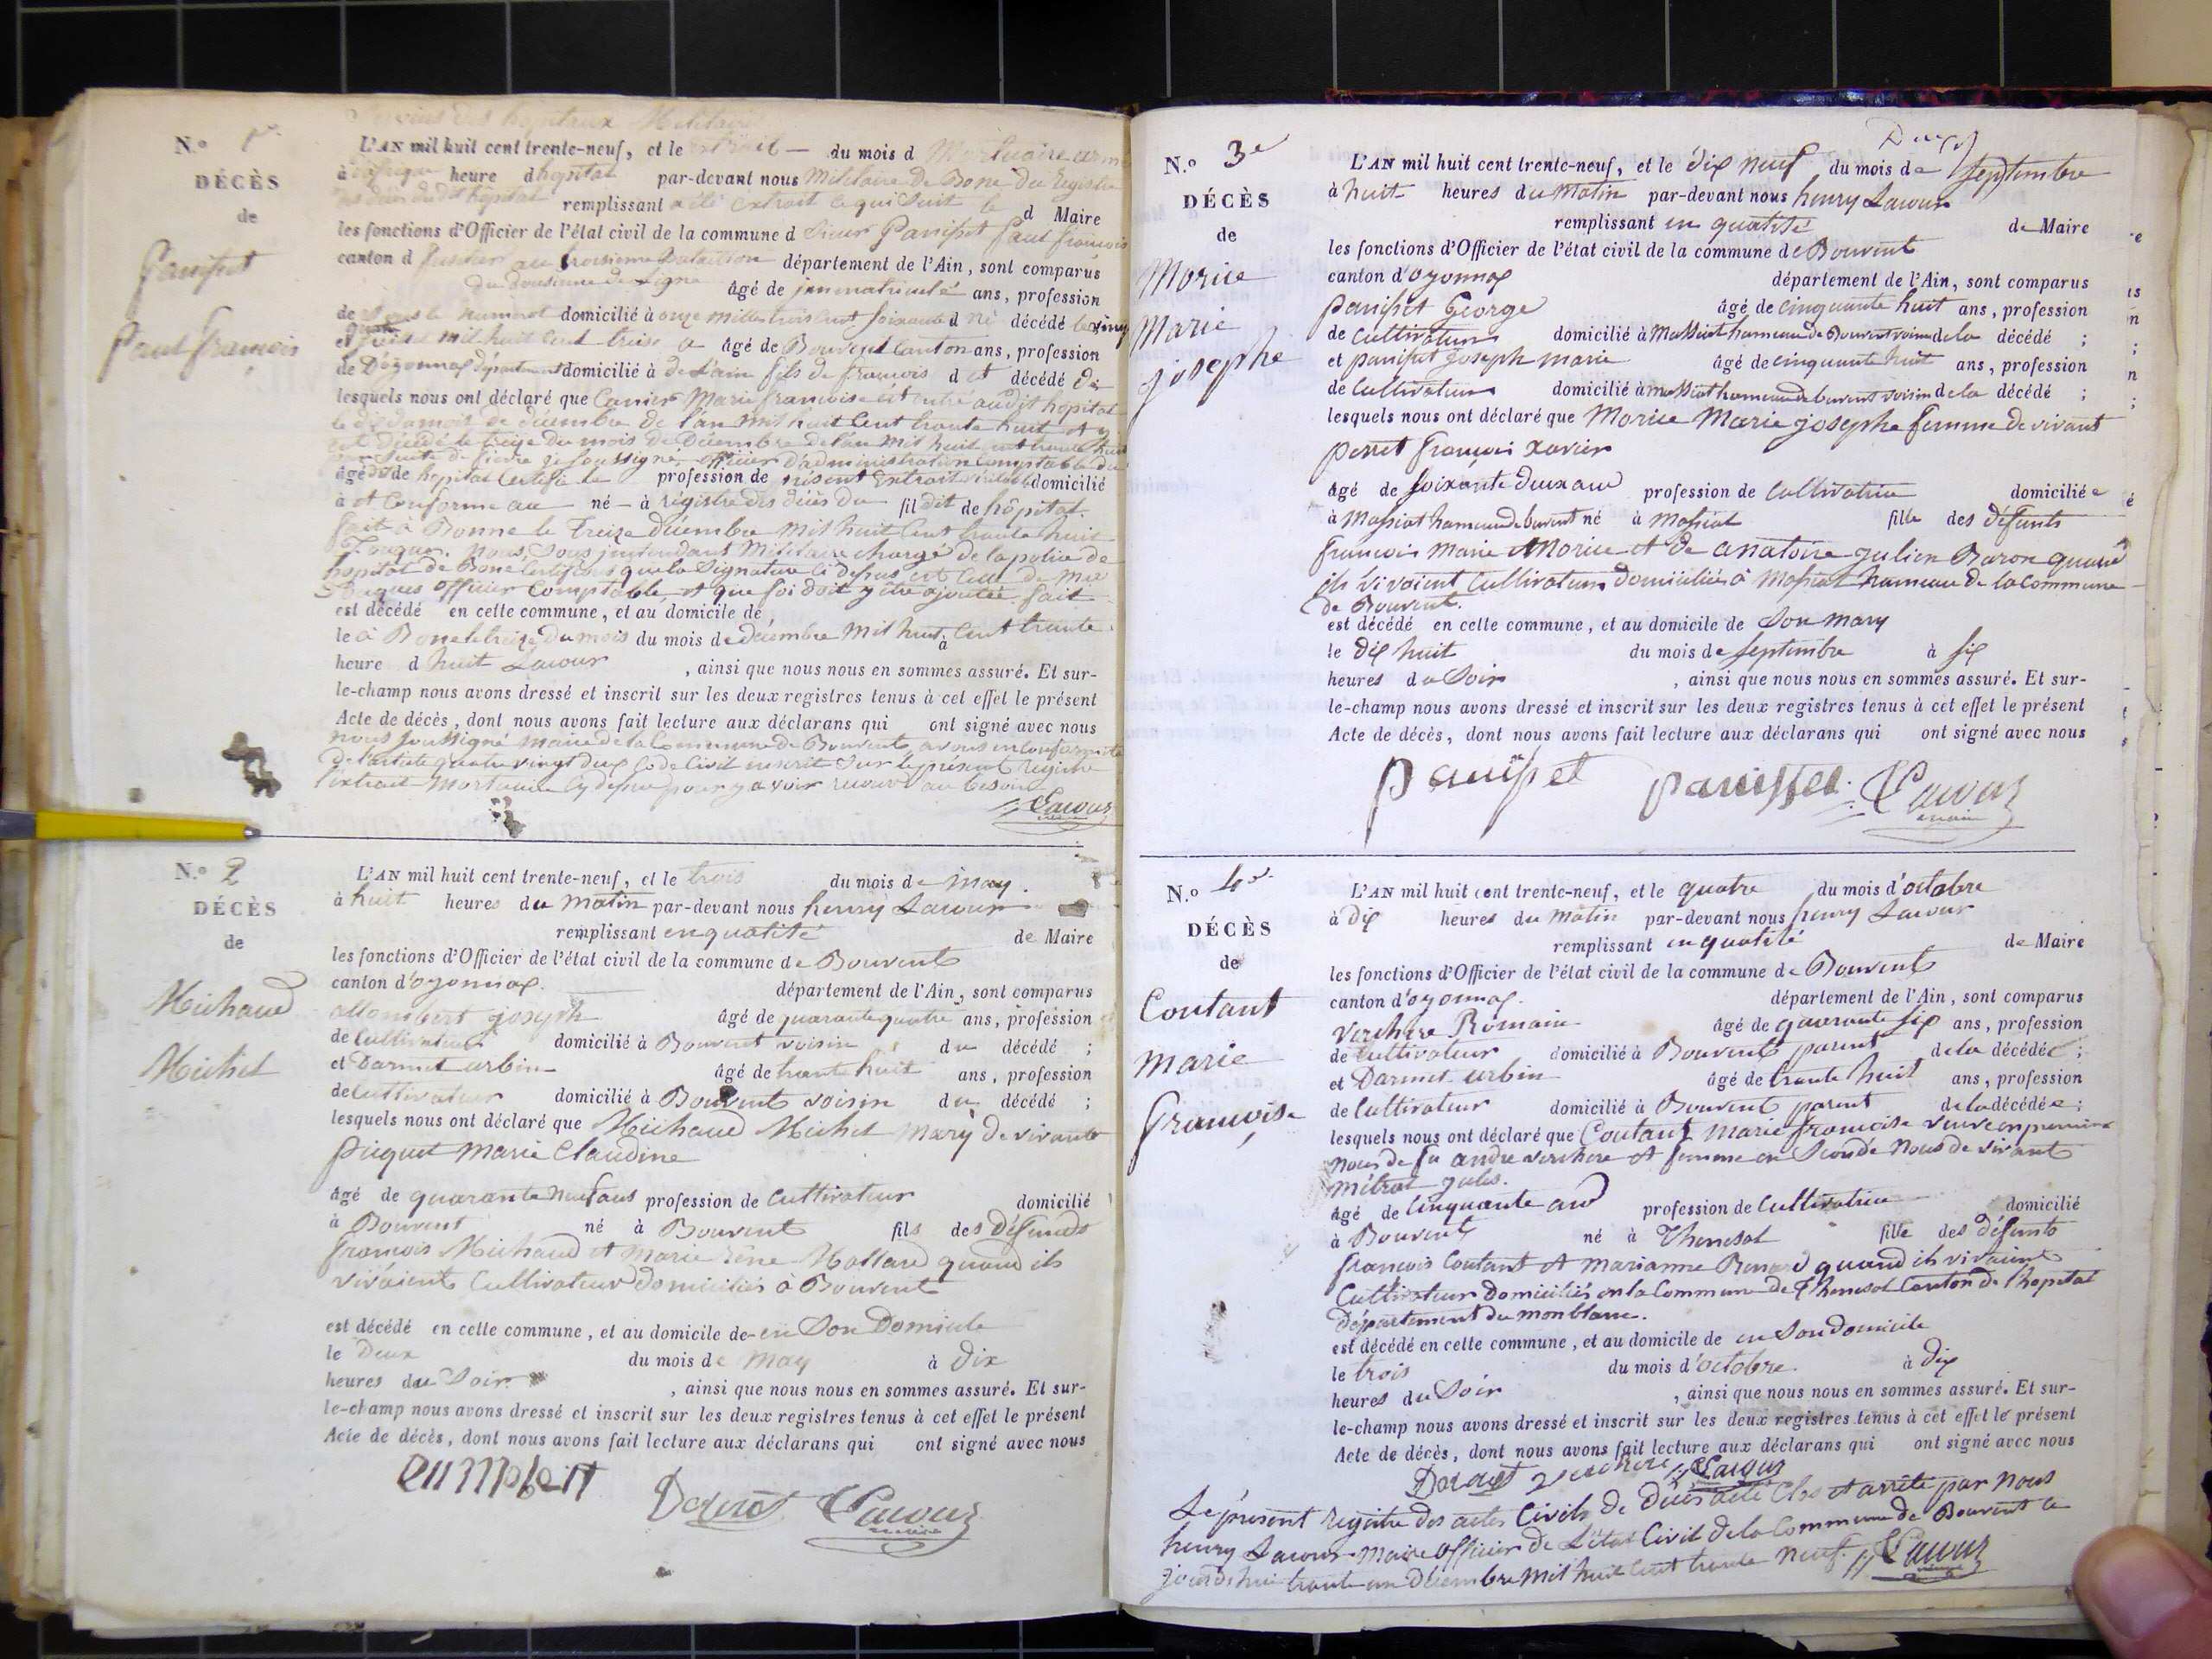 des hopitaux Militaires
N.º 1er
DÉCÈS
de
Panisset
Paul François
L'AN mil huit cent trente-neuf, et le extrait — du mois d Mortuaire
à heure d hopital par-devant nous Militaire De Bone Du Registre
des décès dudit hopital remplissant a été extrait ce qui suit le d Maire
les fonctions d'Officier de l'état civil de la commune d Sieur Panisset Paul François
canton d fusilier au troisieme Bataillon département de l'Ain, sont comparus
du Douzieme de Ligne âgé de immatriculé ans, profession
de Sous le numerot domicilié à onze mille trois Cent Soixante d né décédé le vingt
et mil huit Cent treize a âgé de Bouvent Canton ans, profession
de D'oyonnax département domicilié à de L'ain fils de françois d et décédé de
lesquels nous ont déclaré que Marie françoise est entré audit hopital
le dix du mois de décembre de l'an mil huit Cent trente huit et y
est décédé le treize du mois de Décembre de l'an mil huit cent trente huit
par Suite de fievre Je soussigné, officier D'administration Comptable du
âgé dit de hopital Certifie le profession de présent Extrait domicilié
à et Conforme au né — à régistre des décès du fil dit de hôpital.
fait à Bonne le Treize Décembre Mil huit Cent trente huit
Nous, Sous intendant Militaire chargé de la police de
hopital de Bone Certifions que la Signature Ci dessus est Celle de Mr
officier Comptable, et que foi doit y être ajoutée fait
est décédé en cette commune, et au domicile de
le à Bone le treize du mois du mois de décembre Mil huit à Cent trente
heure d huit Lacour , ainsi que nous nous en sommes assuré. Et sur-
le-champ nous avons dressé et inscrit sur les deux registres tenus à cet effet le présent
Acte de décès, dont nous avons fait lecture aux déclarans qui ont signé avec nous
nous soussigné maire de la Commune de Bouvent, avons en conformité
de l'article quatre vingt dix Code Civil inscrit Sur le présent registre
l'extrait Mortuaire Cy dessus pour y avoir recours au besoin
Lacour
maire
N.º 2
DÉCÈS
de
Michaud
Michel
L'AN mil huit cent trente-neuf, et le trois du mois de may.
à huit heures du matin par-devant nous henry Lacour
remplissant en qualité de Maire
les fonctions d'Officier de l'état civil de la commune de Bouvent
canton d'oyonnax. département de l'Ain, sont comparus
allombert joseph âgé de quarante quatre ans, profession
de Cultivateur domicilié à Bouvent voisin du décédé ;
et Darmet urbin âgé de trente huit ans, profession
de Cultivateur domicilié à Bouvent voisin du décédé ;
lesquels nous ont déclaré que Michaud Michel mary de vivante
Piquet Marie Claudine
âgé de quarante neuf ans profession de Cultivateur domicilié
à Bouvent né à Bouvent fils des Défunds
françois Michaud et Marie Rêne Mollard quand ils
vivaient Cultivateur domiciliés à Bouvent
est décédé en cette commune, et au domicile de en Son Domicile
le Deux du mois de May à dix
heures du Soir , ainsi que nous nous en sommes assuré. Et sur-
le-champ nous avons dressé et inscrit sur les deux registres tenus à cet effet le présent
Acte de décès, dont nous avons fait lecture aux déclarans qui ont signé avec nous
Lacour
maire
N.º 3e
DÉCÈS
de
Morice
Marie
josephe
L'AN mil huit cent trente-neuf, et le dix neuf du mois de Septembre
à huit heures du Matin par-devant nous henry Lacour
remplissant en qualité de Maire
les fonctions d'Officier de l'état civil de la commune de Bouvent
canton d'oyonnax département de l'Ain, sont comparus
panisset George âgé de cinquante huit ans, profession
de Cultivateur domicilié à Massiat hameau de Bouvent voisin de la décédé ;
et panisset joseph marie âgé de cinquante huit ans, profession
de Cultivateur domicilié à massiat hameau de bouvent voisin de la décédé ;
lesquels nous ont déclaré que Morice Marie josephe femme de vivant
perret françois xavier
âgé de soixante deux ans profession de Cultivatrice domiciliée
à Massiat hameau de bouvent né à Massiat fille des défunts
françois Marie Morice et de anatoire julien Baron quand
ils vivaient Cultivateurs Domiciliés à Massiat hameau de la Commune
de Bouvent.
est décédé en cette commune, et au domicile de Son mary
le Dix huit du mois de Septembre à six
heures du Soir , ainsi que nous nous en sommes assuré. Et sur-
le-champ nous avons dressé et inscrit sur les deux registres tenus à cet effet le présent
Acte de décès, dont nous avons fait lecture aux déclarans qui ont signé avec nous
panisset panisset Lacour
maire
N.º 4e
DÉCÈS
de
Coutant
Marie
françoise
L'AN mil huit cent trente-neuf, et le quatre du mois d'octobre
à dix heures du matin par-devant nous henry Lacour
remplissant en qualité de Maire
les fonctions d'Officier de l'état civil de la commune de Bouvent
canton d'oyonnax. département de l'Ain, sont comparus
Verchere Romain âgé de quarante six ans, profession
de Cultivateur domicilié à Bouvent parent de la décédée ;
et Darmet urbin âgé de trente huit ans, profession
de Cultivateur domicilié à Bouvent parent de la décédée ;
lesquels nous ont déclaré que Coutant Marie françoise veuve en premiere
nous de fu andre verchere et femme en Seconde Nous de vivant
métrat jules.
âgé de Cinquante ans profession de Cultivatrice domicilié
à Bouvent né à Thenesol fille des défunts
françois Coutant et Marianne quand ils vivaient
Cultivateur Domiciliés en la Commune de Thenesol Canton de l'hopital
Département du monblanc.
est décédé en cette commune, et au domicile de en Son domicile
le trois du mois d'octobre à dix
heures du Soir , ainsi que nous nous en sommes assuré. Et sur-
le-champ nous avons dressé et inscrit sur les deux registres tenus à cet effet le présent
Acte de décès, dont nous avons fait lecture aux déclarans qui ont signé avec nous
verchere Lacour
Le présent registre des actes Civils de Décès a été Clos et arrêté par nous
henry Lacour Maire officier de L'état Civil de la Commune de Bouvent ce
jourd'hui trente un Décembre Mil huit Cent trente neuf. Lacour